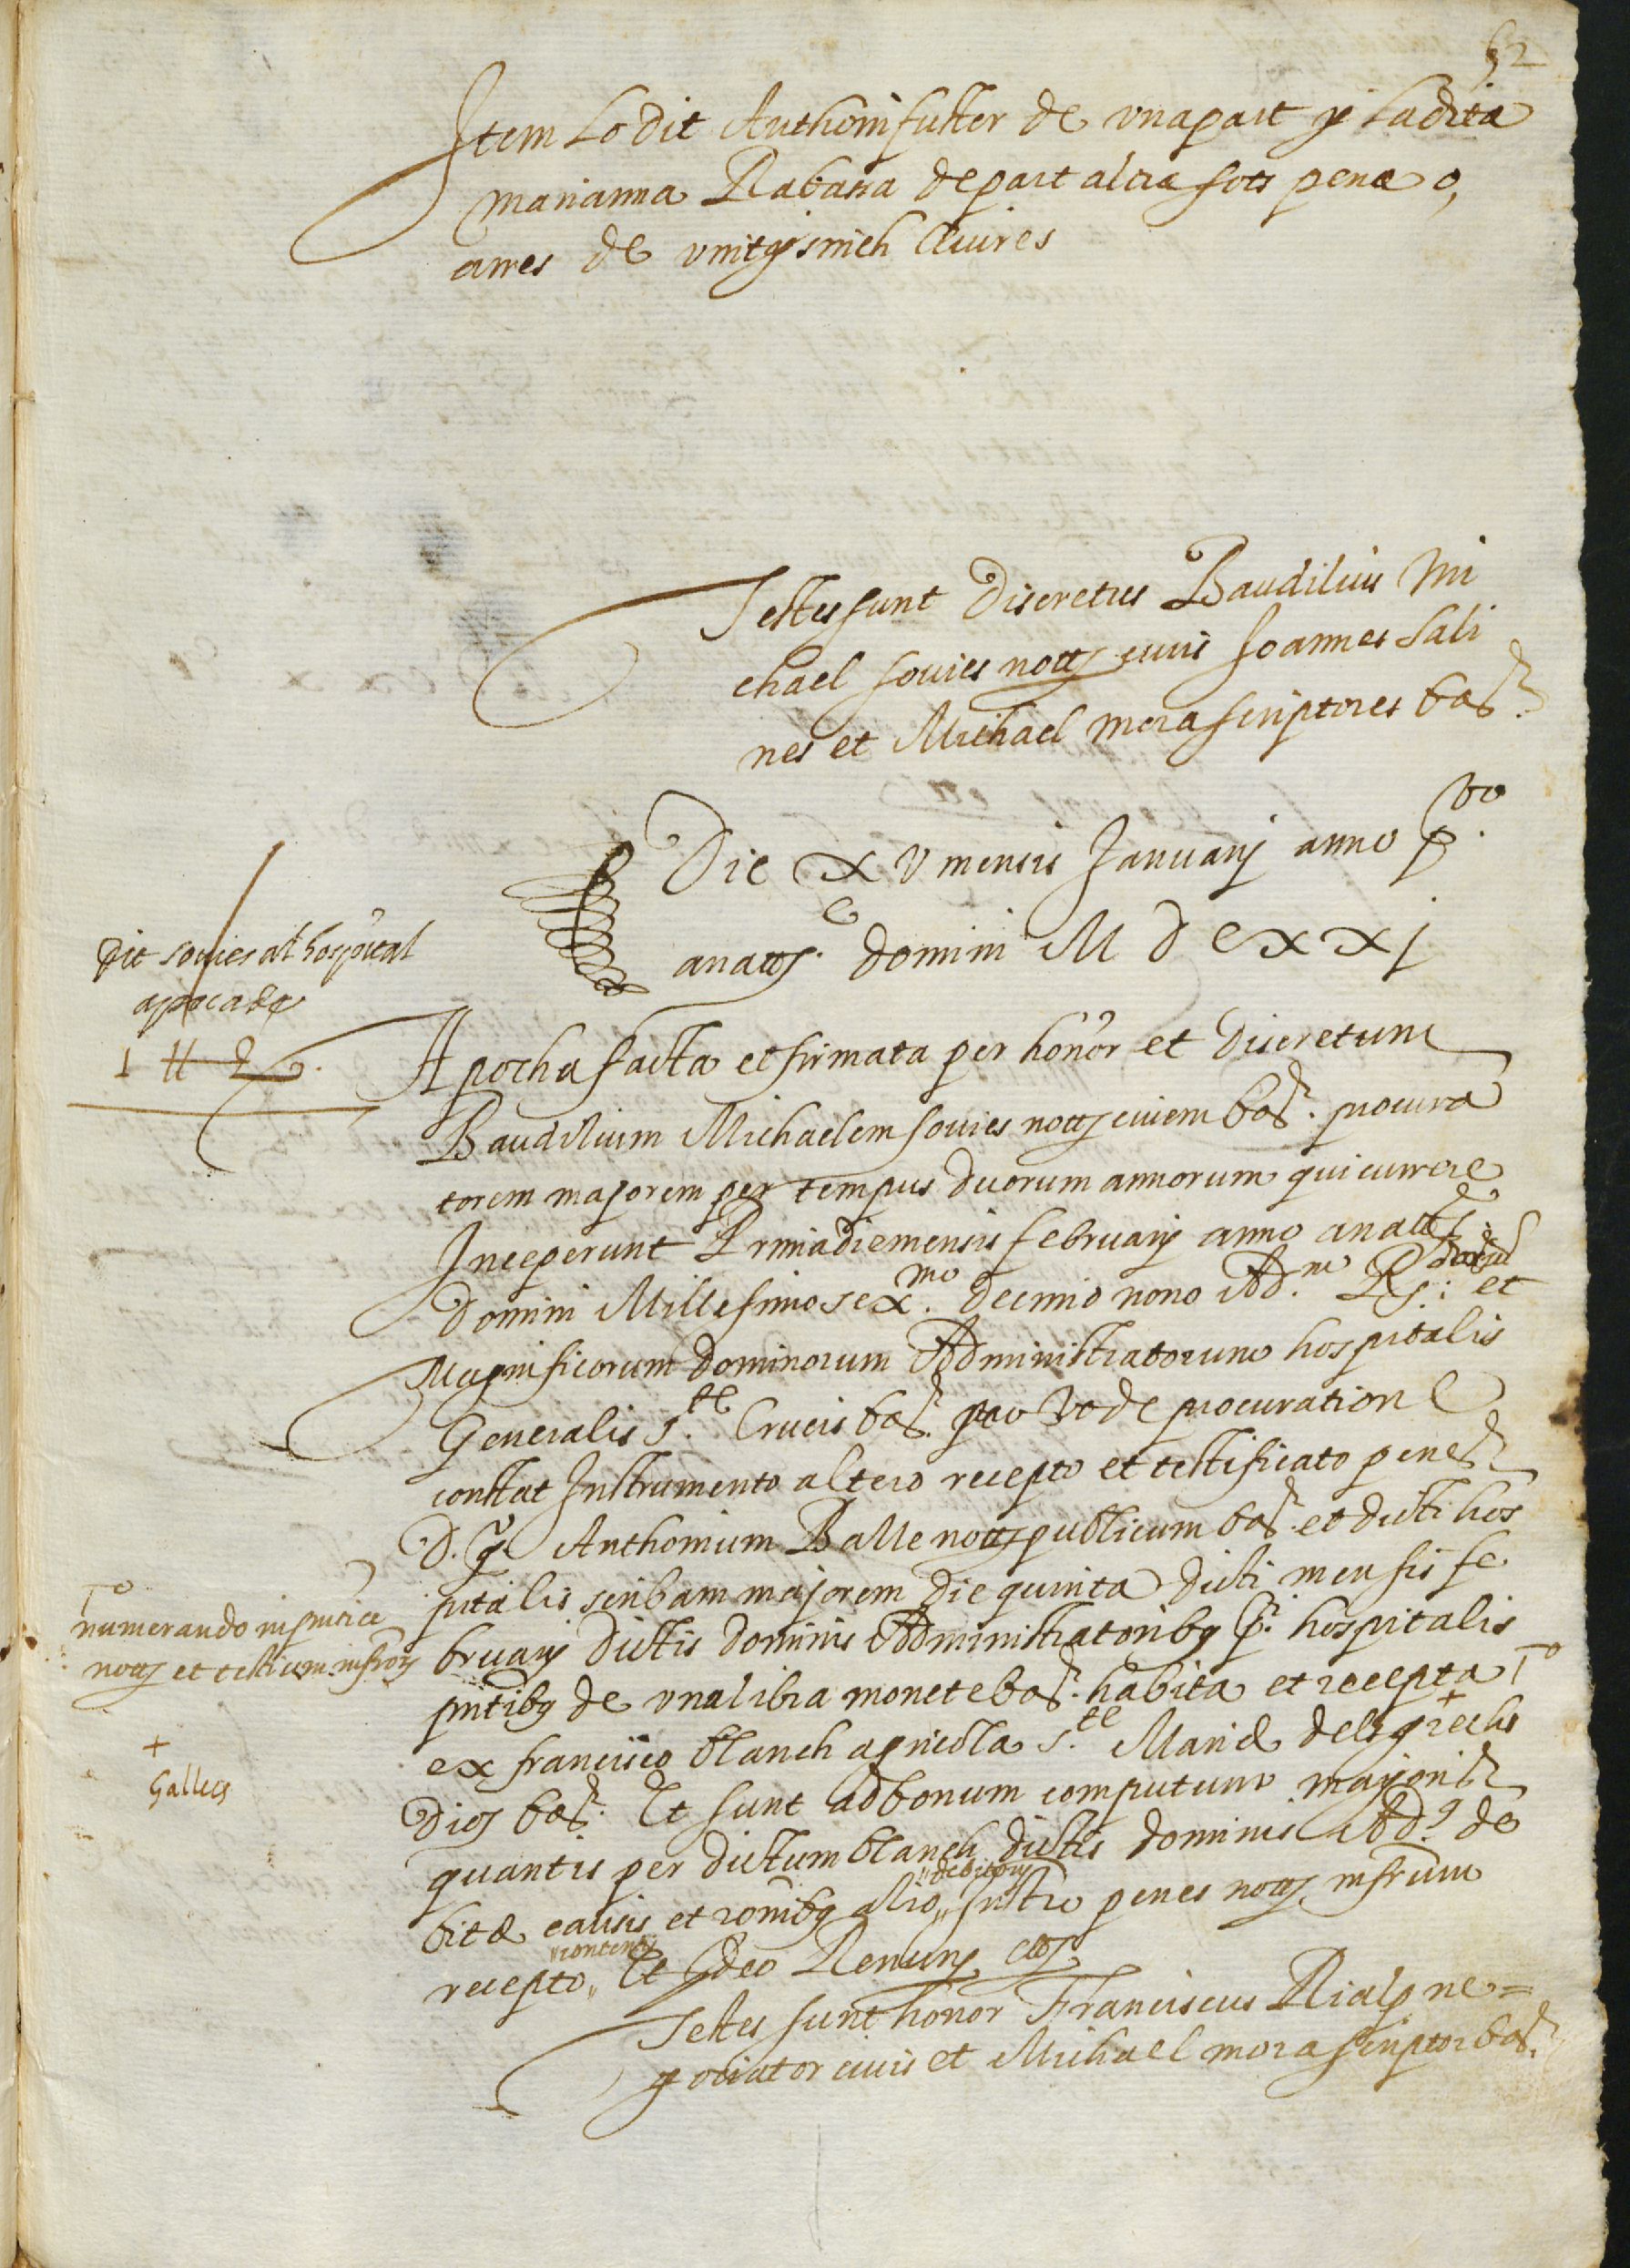 52
Item Lo dit Anthoni fuster de una part y La dita
marianna Rabassa de part altra sots pena o,
arres de vint y sinch lliures
Testes sunt Discretus Baudilius Mi
chael sovies nots civis Joannes Sali
nes et Michael mora scriptores bar.
Die XV mensis Januarij anno p.to
a nats. domini M D C XXj
Dit sovies al hospital
apoca de
1 ll
Apocha facta et firmata per honor et Discretum
Baudilium Michaelem sovies nots civem bar. procura
torem majorem per tempus duorum annorum qui currere
Inceperunt Prima die mensis februarij anno a nats.
Domini Millesimo sex.mo decimo nono Ad.m Rs: et
Magnificorum dominorum Administratorum hospitalis
Generalis s.te Crucis bar. pro ut de procuratione
constat Instrumento altero recepto et testificato penes
D. q. Anthonium Batlle nots publicum bar. et dicti hos
pitalis scribam majorem die quinta dicti mensis fe
bruarij dictis dominis Administratoribg p. hospitalis
pntibg de una libra monete bar. habita et recepta
numerando in pntia
nots et testium infrors
ex francisco blanch agricola s.te Marie dels +
+
Gallecs
Dios bar. Et sunt ad bonum computum majoris
quantis per dictum blanch dictis dominis Ad.s de
bite causis et ronibg alio "debitorij" Instro penes nots infrum
recepto "contentis" Et Ideo Renuns etc
Testes sunt honor Franciscus Rialp ne=
gotiator civis et Michael mora scriptor bar.